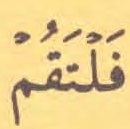 فَلْتَقُمْ